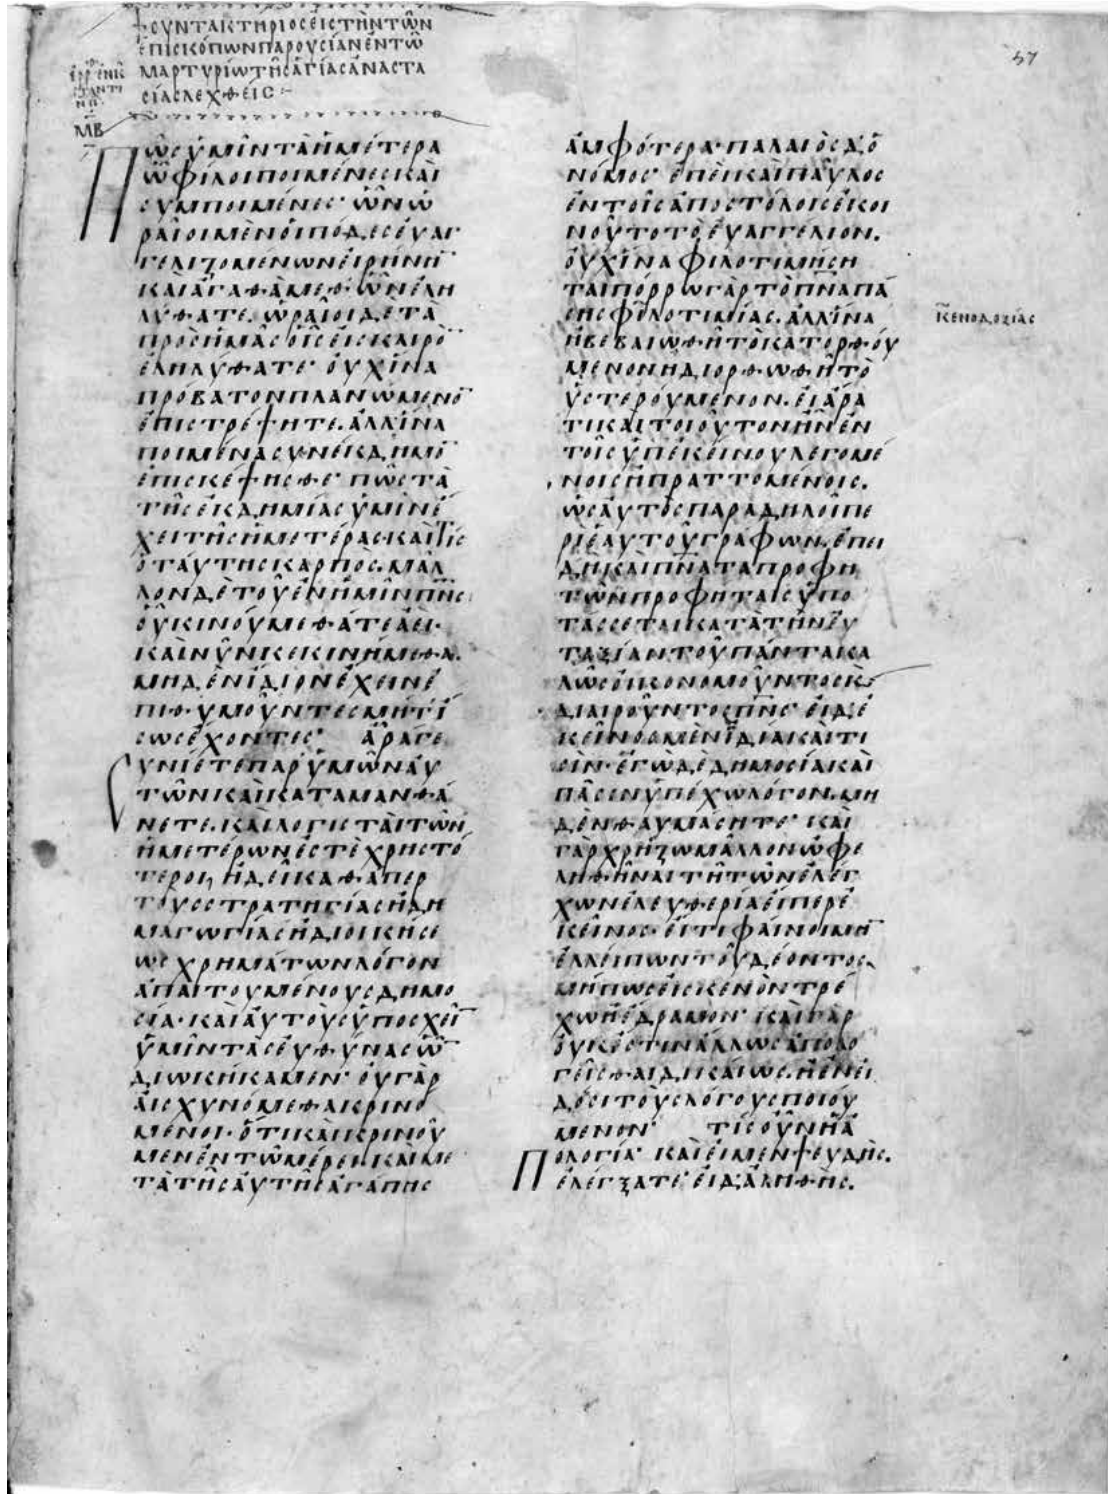 ϹΥΝΤΑΚΤΗΡΙΟϹΕΙϹΤΗΝΤΩΝ
ΕΠΙϹΚΟΠΩΝΠΑΡΟΥϹΙΑΝΕΝΤΩ
ΜΑΡΤΥΡΙΩΤΗϹΑΓΙΑϹΑΝΑϹΤΑ
ϹΙΑϹΛΕΧΘΕΙϹ:-
ΜΒ
ΠΩϹΥΜΙΝΤΑΗΜΕΤΕΡΑ
ΩΦΙΛΟΙΠΟΙΜΕΝΕϹΚΑΙ
ϹΥΜΠΟΙΜΕΝΕϹ· ΩΝΩ
ΡΑΙΟΙΜΕΝΟΙΠΟΔΕϹΕΥΑΓ
ΓΕΛΙΖΟΜΕΝΩΝΕΙΡΗΝΗ̅
ΚΑΙΑΓΑΘΑΜΕΘΩΝΕΛΗ
ΛΥΘΑΤΕ. ΩΡΑΙΟΙΔΕΤΑ
ΠΡΟϹΗΜΑϹΟΙϹΕΙϹΚΑΙΡΟ̅
ΕΛΗΛΥΘΑΤΕ· ΟΥΧΙΝΑ
ΠΡΟΒΑΤΟΝΠΛΑΝΩΜΕΝΟ̅
ΕΠΙϹΤΡΕΨΗΤΕ. ΑΛΛΙΝΑ
ΠΟΙΜΕΝΑϹΥΝΕΚΔΗΜΟ̅
ΕΠΙϹΚΕΨΗϹΘΕ· ΠΩϹΤΑ
ΤΗϹΕΚΔΗΜΙΑϹΥΜΙΝΕ
ΧΕΙΤΗϹΗΜΕΤΕΡΑϹ· ΚΑΙΤΙϹ
ΟΤΑΥΤΗϹΚΑΡΠΟϹ. ΜΑΛ
ΛΟΝΔΕΤΟΥΕΝΗΜΙΝΠΝ̅Ϲ
ΟΥΚΙΝΟΥΜΕΘΑΤΕΑΕΙ·
ΚΑΙΝΥΝΚΕΚΙΝΗΜΕΘΑ.
ΜΗΔΕΝΙΔΙΟΝΕΧΕΙΝΕ
ΠΙΘΥΜΟΥΝΤΕϹΜΗΤΙ
ϹΩϹΕΧΟΝΤΕϹ· ΑΡΑΓΕ
ϹΥΝΙΕΤΕΠΑΡΥΜΩΝΑΥ
ΤΩΝΚΑΙΚΑΤΑΜΑΝΘΑ
ΝΕΤΕ. ΚΑΙΛΟΓΙϹΤΑΙΤΩΝ
ΗΜΕΤΕΡΩΝΕϹΤΕΧΡΗϹΤΟ
ΤΕΡΟΙ, ΗΔΕΙΚΑΘΑΠΕΡ
ΤΟΥϹϹΤΡΑΤΗΓΙΑϹΗΔΗ
ΜΑΓΩΓΙΑϹΗΔΙΟΙΚΗϹΕ
ΩϹΧΡΗΜΑΤΩΝΛΟΓΟΝ
ΑΠΑΙΤΟΥΜΕΝΟΥϹΔΗΜΟ
ϹΙΑ· ΚΑΙΑΥΤΟΥϹΥΠΟϹΧΕΙ̅
ΥΜΙΝΤΑϹΕΥΘΥΝΑϹΩ̅
ΔΙΩΚΗΚΑΜΕΝ· ΟΥΓΑΡ
ΑΙϹΧΥΝΟΜΕΘΑΚΡΙΝΟ
ΜΕΝΟΙ· ΟΤΙΚΑΙΚΡΙΝΟΥ
ΜΕΝΕΝΤΩΜΕΡΕΙ. ΚΑΙΜΕ
ΤΑΤΗϹΑΥΤΗϹΑΓΑΠΗϹ
ΑΜΦΟΤΕΡΑ· ΠΑΛΑΙΟϹΔΟ
ΝΟΜΟϹ· ΕΠΕΙΚΑΙΠΑΥΛΟϹ
ΕΝΤΟΙϹΑΠΟϹΤΟΛΟΙϹΕΚΟΙ
ΝΟΥΤΟΤΟΕΥΑΓΓΕΛΙΟΝ.
ΟΥΧΙΝΑΦΙΛΟΤΙΜΗϹΗ
ΤΑΙΠΟΡΡΩΓΑΡΤΟΠΝ̅ΑΠΑ
ϹΗϹΦΙΛΟΤΙΜΙΑϹ. ΑΛΛΙΝΑ
ΚΕΝΟΔΟΞΙΑϹ
ΗΒΕΒΑΙΩΘΗΤΟΚΑΤΟΡΘΟΥ
ΜΕΝΟΝΗΔΙΟΡΘΩΘΗΤΟ
ΥϹΤΕΡΟΥΜΕΝΟΝ. ΕΙΑΡΑ
ΤΙΚΑΙΤΟΙΟΥΤΟΝΗΝΕΝ
ΤΟΙϹΥΠΕΚΕΙΝΟΥΛΕΓΟΜΕ
ΝΟΙϹΗΠΡΑΤΤΟΜΕΝΟΙϹ.
ΩϹΑΥΤΟϹΠΑΡΑΔΗΛΟΙΠΕ
ΡΙΕΑΥΤΟΥΓΡΑΦΩΝ. ΕΠΕΙ
ΔΗΚΑΙΠΝ̅ΑΤΑΠΡΟΦΗ
ΤΩΝΠΡΟΦΗΤΑΙϹΥΠΟ
ΤΑϹϹΕΤΑΙΚΑΤΑΤΗΝΕΥ
ΤΑΞΙΑΝΤΟΥΠΑΝΤΑΚΑ
ΛΩϹΟΙΚΟΝΟΜΟΥΝΤΟϹΚ
ΔΙΑΙΡΟΥΝΤΟϹΠΝ̅Ϲ· ΕΙΔΕ
ΚΕΙΝΟϹΜΕΝΙΔΙΑΚΑΙΤΙ
ϹΙΝ· ΕΓΩΔΕΔΗΜΟϹΙΑΚΑΙ
ΠΑϹΙΝΥΠΕΧΩΛΟΓΟΝ. ΜΗ
ΔΕΝΘΑΥΜΑϹΗΤΕ· ΚΑΙ
ΓΑΡΧΡΗΖΩΜΑΛΛΟΝΩΦΕ
ΛΗΘΗΝΑΙΤΗΤΩΝΕΛΕΓ
ΧΩΝΕΛΕΥΘΕΡΙΑΕΙΠΕΡΕ
ΚΕΙΝΟϹ· ΕΙΤΙΦΑΙΝΟΙΜΗ̅
ΕΛΛΕΙΠΩΝΤΟΥΔΕΟΝΤΟϹ
ΜΗΠΩϹΕΙϹΚΕΝΟΝΤΡΕ
ΧΩΗΕΔΡΑΜΟΝ· ΚΑΙΓΑΡ
ΟΥΚΕϹΤΙΝΑΛΛΩϹΑΠΟΛΟ
ΓΕΙϹΘΑΙΔΙΚΑΙΩϹ. ΗΕΝΕΙ
ΔΟϹΙΤΟΥϹΛΟΓΟΥϹΠΟΙΟΥ
ΜΕΝΟΝ· ΤΙϹΟΥΝΗΑ
ΠΟΛΟΓΙΑ· ΚΑΙΕΙΜΕΝΨΕΥΔΗϹ.
ΕΛΕΓΞΑΤΕ· ΕΙΔΑΛΗΘΗϹ.